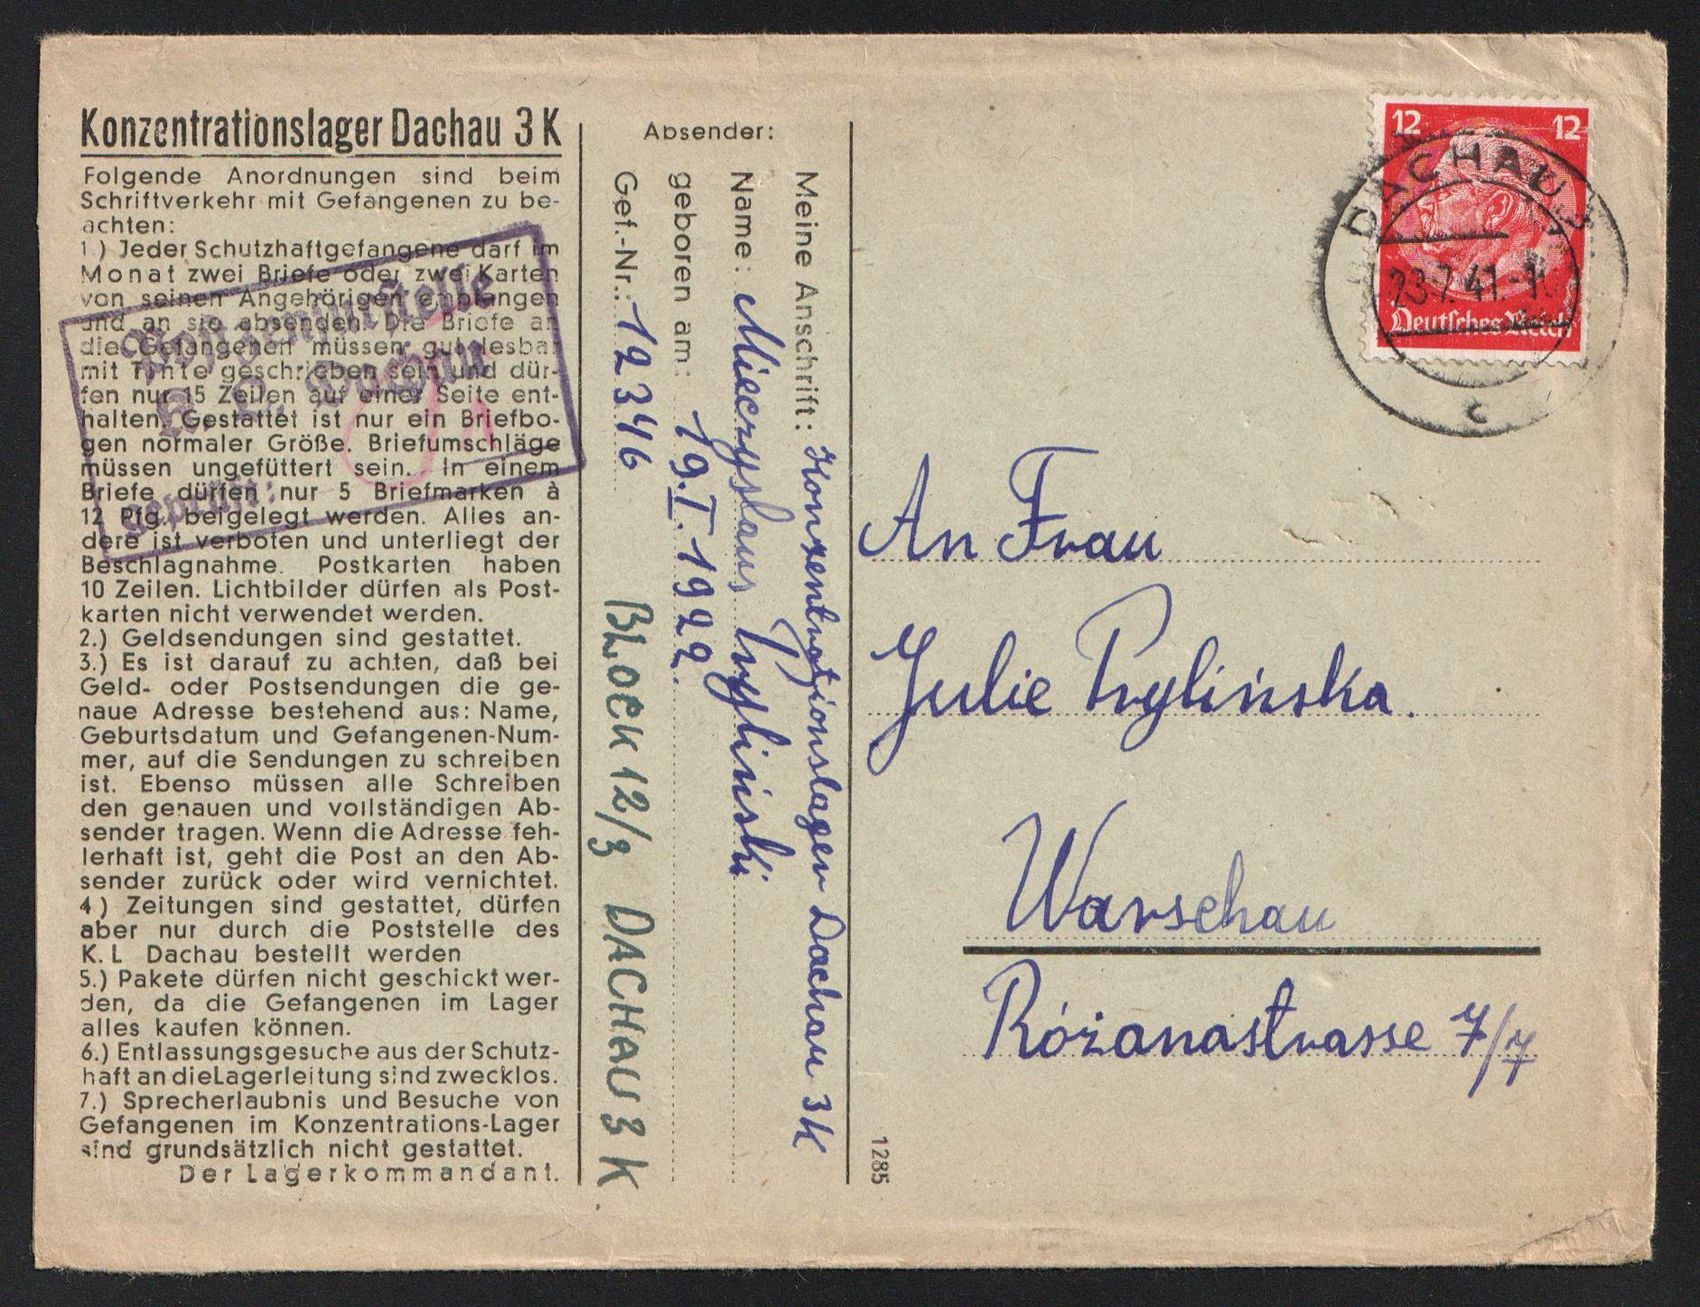 Konzentrationslager Dachau 3 K
Folgende Anordnungen sind beim
Schriftverkehr mit Gefangenen zu be-
achten:
1.) Jeder Schutzhaftgefangene darf im
Monat zwei Briefe oder zwei Karten
von seinen Angehörigen empfangen
und an sie absenden. Die Briefe an
die Gefangenen müssen gut lesbar
mit Tinte geschrieben sein und dür-
fen nur 15 Zeilen auf einer Seite ent-
halten. Gestattet ist nur ein Briefbo-
gen normaler Größe. Briefumschläge
müssen ungefüttert sein. In einem
Briefe dürfen nur 5 Briefmarken à
12 Pfg. beigelegt werden. Alles an-
dere ist verboten und unterliegt der
Beschlagnahme. Postkarten haben
10 Zeilen. Lichtbilder dürfen als Post-
karten nicht verwendet werden.
2.) Geldsendungen sind gestattet.
3.) Es ist darauf zu achten, daß bei
Geld- oder Postsendungen die ge-
naue Adresse bestehend aus: Name,
Geburtsdatum und Gefangenen-Num-
mer, auf die Sendungen zu schreiben
ist. Ebenso müssen alle Schreiben
den genauen und vollständigen Ab-
sender tragen. Wenn die Adresse feh-
lerhaft ist, geht die Post an den Ab-
sender zurück oder wird vernichtet.
4.) Zeitungen sind gestattet, dürfen
aber nur durch die Poststelle des
K. L Dachau bestellt werden
5.) Pakete dürfen nicht geschickt wer-
den, da die Gefangenen im Lager
alles kaufen können.
6.) Entlassungsgesuche aus der Schutz-
haft an die Lagerleitung sind zwecklos.
7.) Sprecherlaubnis und Besuche von
Gefangenen im Konzentrations-Lager
sind grundsätzlich nicht gestattet.
Der Lagerkommandant.
Postzensurstelle
K. L. Dachau
geprüft:
Absender:
Meine Anschrift: Konzentrationslager Dachau 3K
Name: Mieczyslaus Pryliński
geboren am: 19.I.1922.
Gef.-Nr.: 12346
BLOCK 12/3 DACHAU 3 K
1285
12 12
Deutsches Reich
DACHAU
23.7.41.
c
An Frau
Julie Prylińska.
Warschau
Różanastrasse 7/7